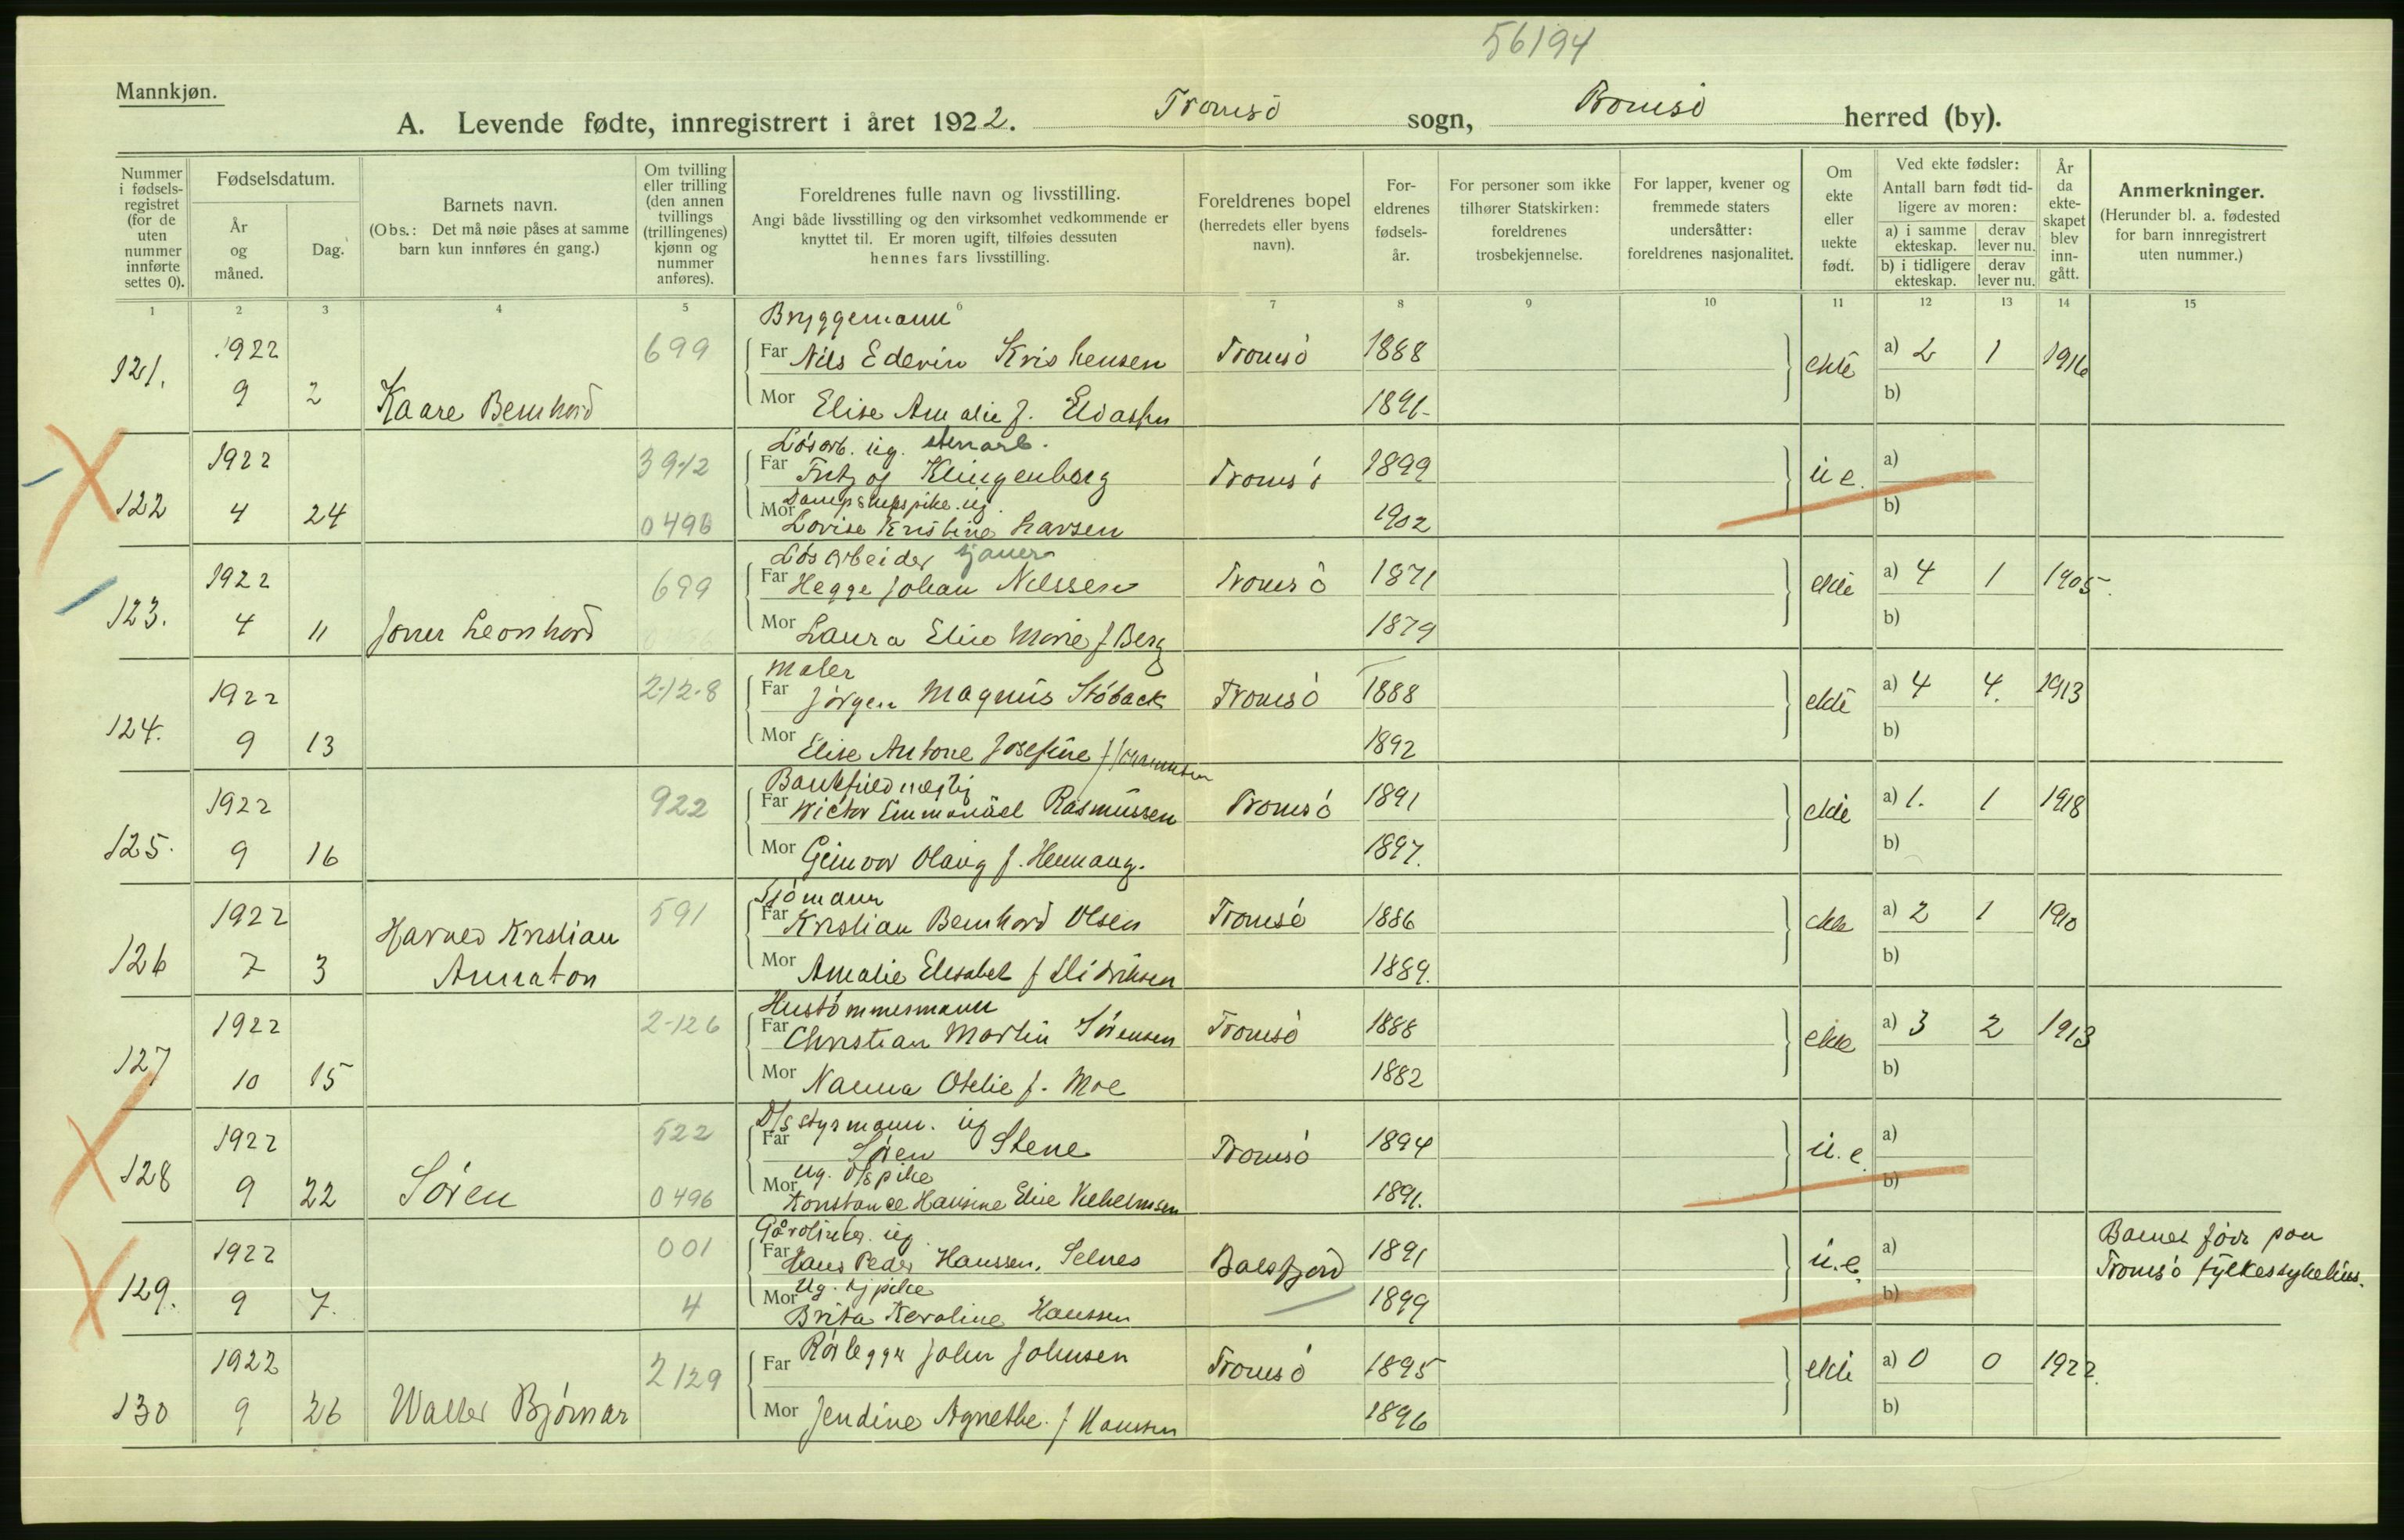 56194
Mannkjøn.
A. Levende fødte, innregistrert i året 1922. Tromsö sogn, Tromsö herred (by).
Nummer i fødsels-registret (for de uten nummer innførte settes 0).
Fødselsdatum.
År og måned.
Dag.
Barnets navn.
(Obs.: Det må nøie påses at samme barn kun innføres én gang.)
Om tvilling eller trilling (den annen tvillings (trillingenes) kjønn og nummer anføres).
Foreldrenes fulle navn og livsstilling.
Angi både livsstilling og den virksomhet vedkommende er knyttet til. Er moren ugift, tilføies dessuten hennes fars livsstilling.
Foreldrenes bopel (herredets eller byens navn).
For-eldrenes fødsels-år.
For personer som ikke tilhører Statskirken: foreldrenes trosbekjennelse.
For lapper, kvener og fremmede staters undersåtter: foreldrenes nasjonalitet.
Om ekte eller uekte født.
Ved ekte fødsler:
Antall barn født tid-ligere av moren:
a) i samme ekteskap.
derav lever nu.
b) i tidligere ekteskap.
derav lever nu.
År da ekte-skapet blev inn-gått.
Anmerkninger.
(Herunder bl. a. fødested for barn innregistrert uten nummer.)
1 2 3 4 5 6 7 8 9 10 11 12 13 14 15
Bryggemann
121. 1922 699 Far Nils Edevin Kristensen Tromsö 1888 ekte a) 2 1 1916
9 2 Kaare Bernhard Mor Elise Amalie f. 1891- b)
Lösarb. ug. stenarb.
1922 3912 Far Fritjof Klingenberg Tromsö 1899 u e. a)
Dampskipspike. ug.
122 4 24 0496 Mor Lovise Kristine Larsen 1902 b)
Lösarbeider sjauer
1922 699 Far Hegge Johan Nilssen Tromsö 1871 ekte a) 4 1 1905.
123. 4 11 Leonhard Mor Laura Elise Marie f Berg 1879 b)
Maler
1922 2-12-8 Far Jörgen Magnus Stöback Tromsö 1888 ekte a) 4 4. 1913
124. 9 13 Mor Elise Antone Josefine f 1892 b)
1922 922 Far Victor Emmanuel Rasmussen Tromsö 1891 ekte a) 1. 1 1918
125. 9 16 Mor Olaug f. 1897. b)
Sjömann
1922 Kristian 591 Far Kristian Bernhard Olsen Tromsö 1886 ekte a) 2 1 1910
126 7 3 Mor Amalie Elisabet f Didriksen 1889. b)
Hustömmermann
1922 2-126 Far Christian Martin Sörensen Tromsö 1888 ekte a) 3 2 1913
127 10 15 Mor Nanna Otelie f. Moe 1882 b)
D/s styrmann. ug
1922 522 Far Sören Stene Tromsö 1894 u. e. a)
Ug. D/s pike
128 9 22 Sören 0496 Mor Konstance Hansine Elise Vilhelmsen 1891. b)
ug.
1922 001 Far Hans Peder Hanssen, Selnes Balsfjord 1891 u. e. a) Barnet född paa
Ug. tj pike
Tromsö fylkessykehus.
129. 9 7. 4 Mor Brita Karoline Hanssen 1899 b)
1922 2129 Far Rörlegger John Johnsen Tromsö 1895 ekte a) 0 0 1922.
130 9 26 Walter Björnar Mor Jendine Agnethe f Hansen 1896 b)